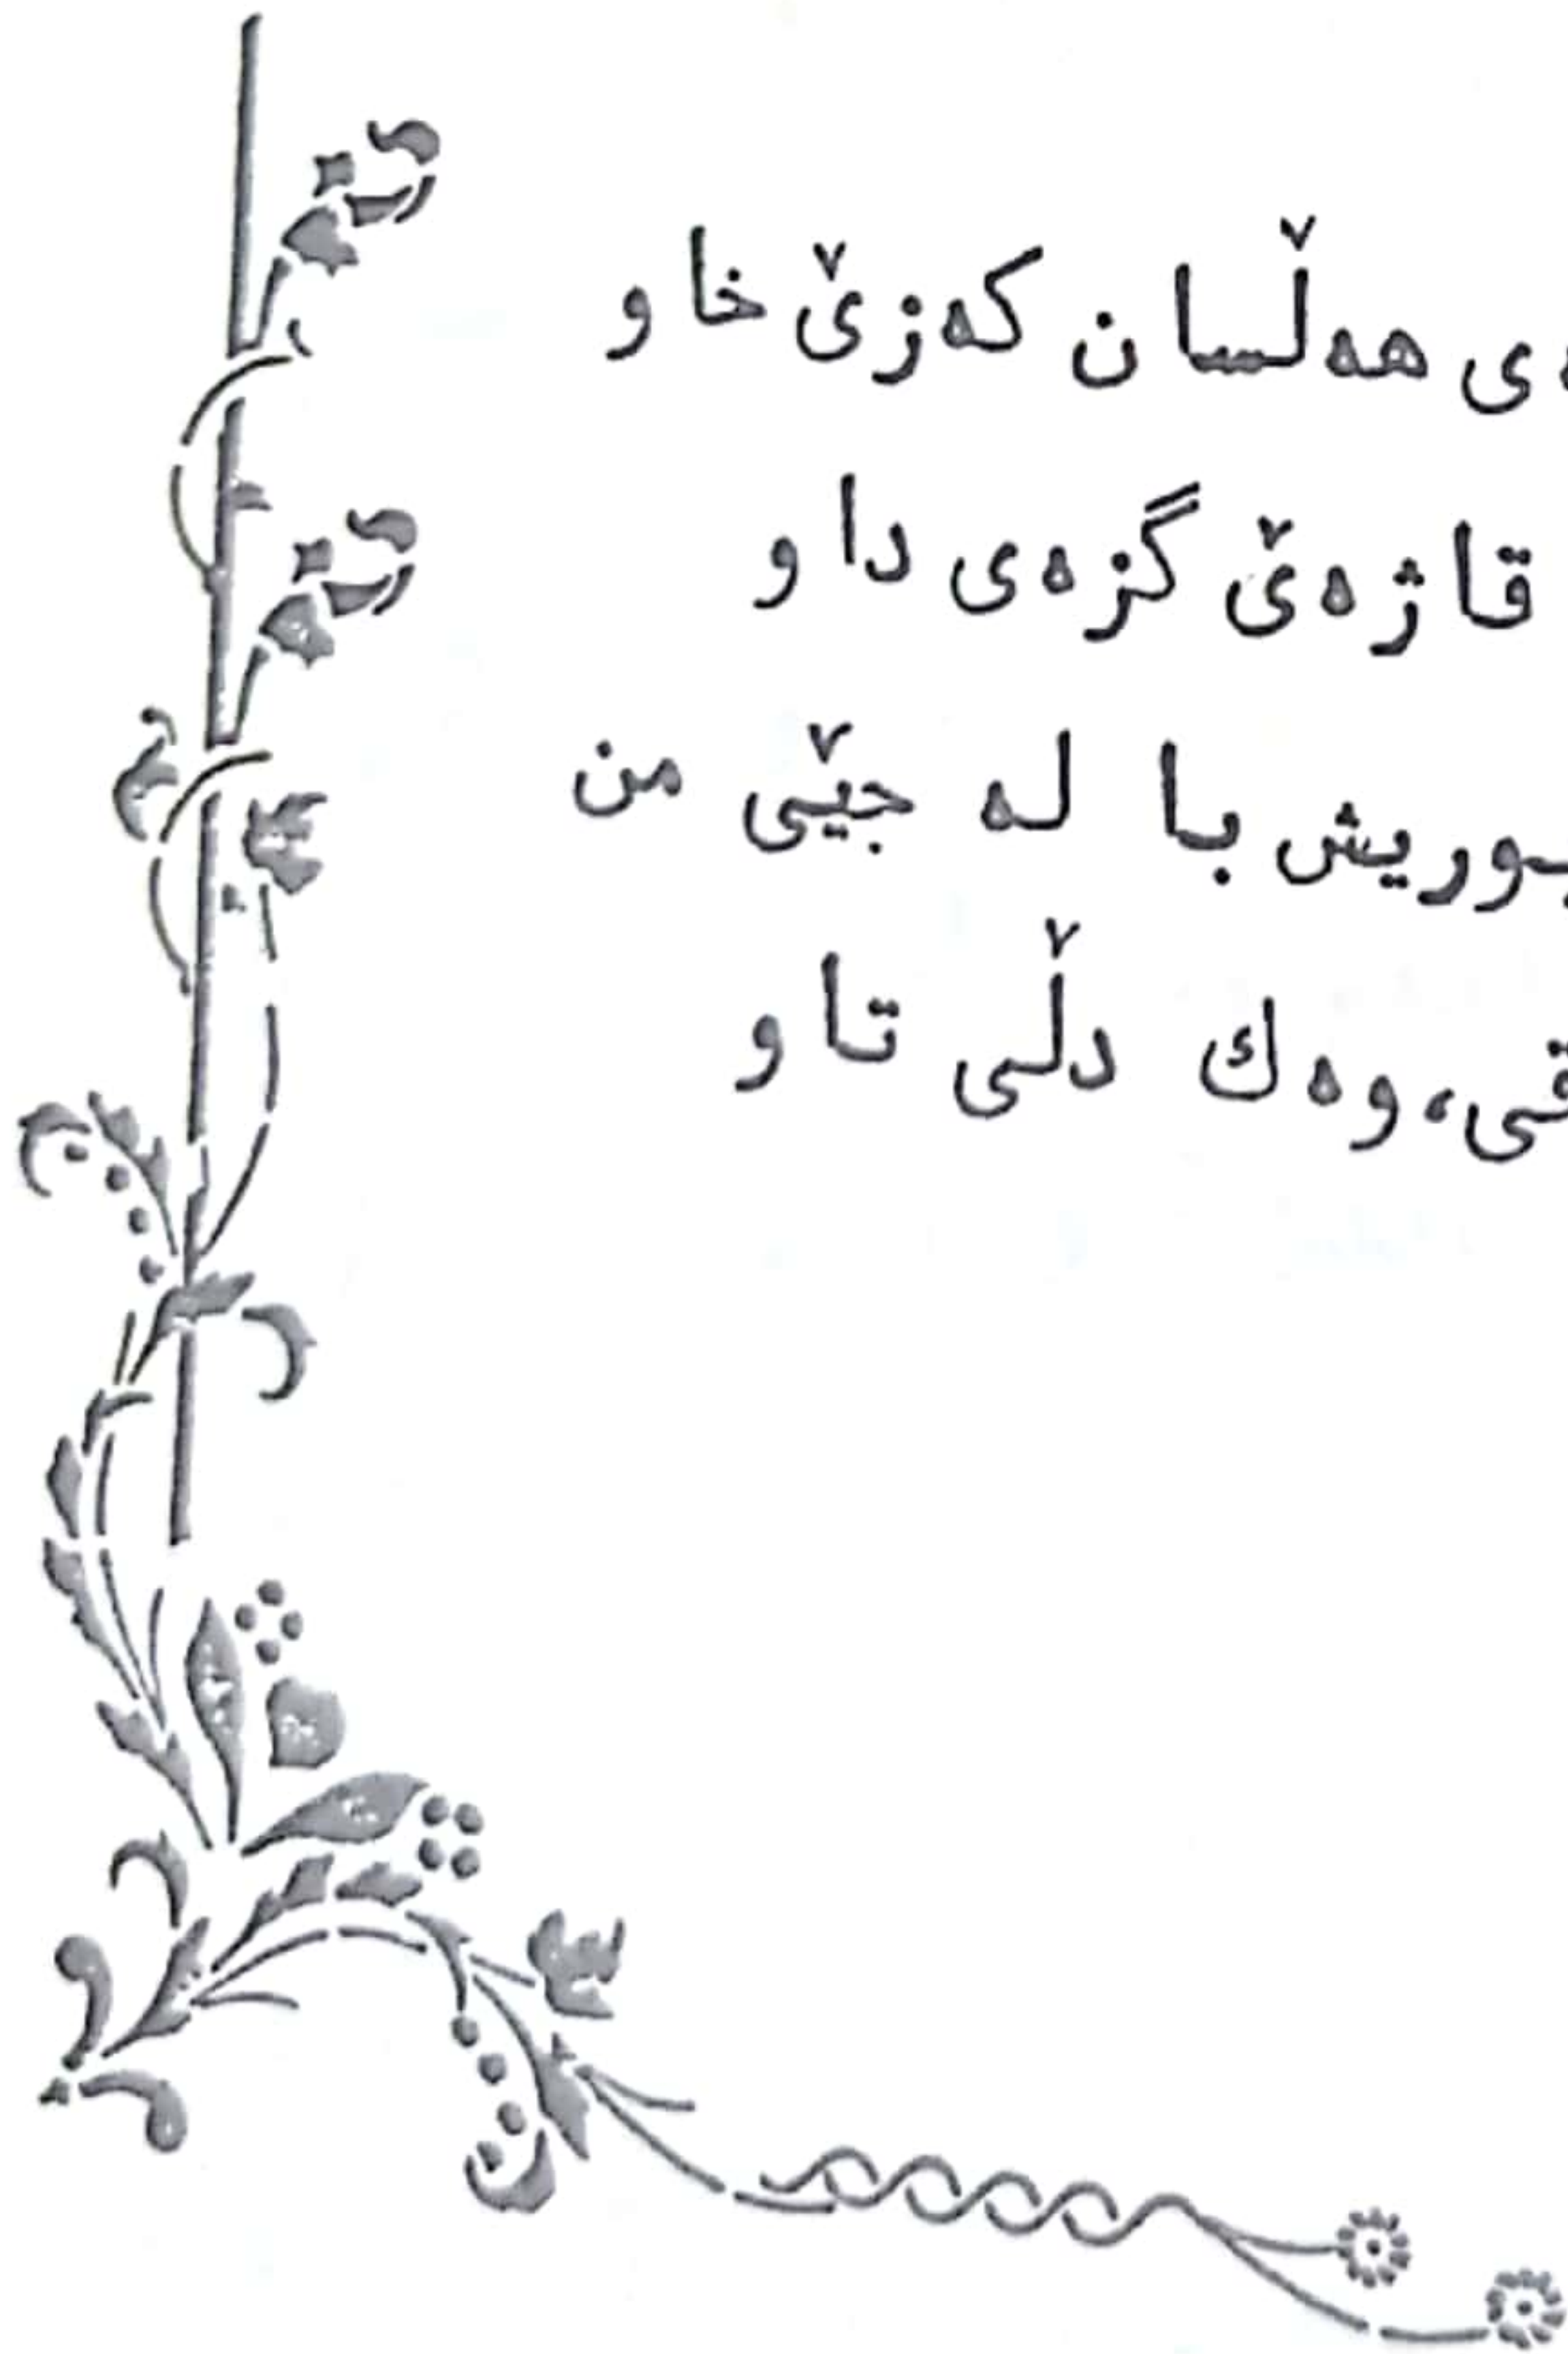 هەڵسان کەزێ خاو
قاژەێ گزەی داو
با لە جێی من
وەك دڵی تاو